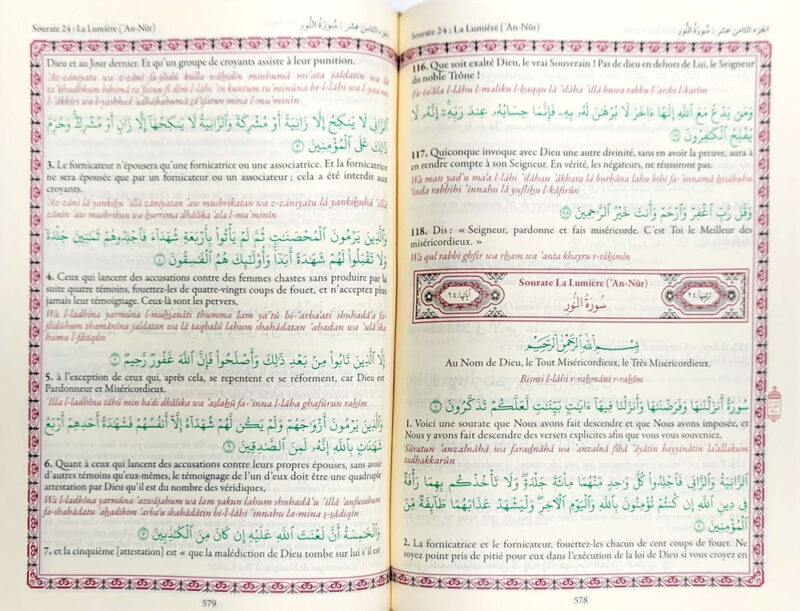 Sourate 24 : La Lumière ('An-Nûr)
الجزء الثامن عشر : سُورَةُ النُّور
116. Que soit exalté Dieu, le vrai Souverain ! Pas de dieu en dehors de Lui, le Seigneur
du noble Trône !
Fa-ta'âla l-lâhu l-maliku l-ḥaqqu lâ 'ilâha 'illâ huwa rabbu l-'arshi l-karîm
وَمَن يَدْعُ مَعَ ٱللَّهِ إِلَٰهًا ءَاخَرَ لَا بُرْهَٰنَ لَهُۥ بِهِۦ فَإِنَّمَا حِسَابُهُۥ عِندَ رَبِّهِۦٓ إِنَّهُۥ لَا
يُفْلِحُ ٱلْكَٰفِرُونَ ١١٧
117. Quiconque invoque avec Dieu une autre divinité, sans en avoir la preuve, aura à
en rendre compte à son Seigneur. En vérité, les négateurs, ne réussiront pas.
Wa man yad'u ma'a l-lâhi 'ilâhan 'âkhara lâ burhâna lahu bihi fa-'innamâ ḥisâbuhu
'inda rabbihi 'innahu lâ yufliḥu l-kâfirûn
وَقُل رَّبِّ ٱغْفِرْ وَٱرْحَمْ وَأَنتَ خَيْرُ ٱلرَّٰحِمِينَ ١١٨
118. Dis : « Seigneur, pardonne et fais miséricorde. C'est Toi le Meilleur des
miséricordieux. »
Wa qul rabbi ghfir wa rḥam wa 'anta khayru r-râḥimîn
Sourate La Lumière ('An-Nûr)
سُورَةُ النُّور
آياتها: ٦٤
ترتيبها: ٢٤
بِسْمِ ٱللَّهِ ٱلرَّحْمَٰنِ ٱلرَّحِيمِ
Au Nom de Dieu, le Tout Miséricordieux, le Très Miséricordieux.
Bismi l-lâhi r-raḥmâni r-raḥîm
سُورَةٌ أَنزَلْنَٰهَا وَفَرَضْنَٰهَا وَأَنزَلْنَا فِيهَآ ءَايَٰتٍۭ بَيِّنَٰتٍ لَّعَلَّكُمْ تَذَكَّرُونَ ١
1. Voici une sourate que Nous avons fait descendre et que Nous avons imposée, et
Nous y avons fait descendre des versets explicites afin que vous vous souveniez.
Sûratun 'anzalnâhâ wa faradnâhâ wa 'anzalnâ fîhâ 'âyâtin bayyinâtin la'allakum
tadhakkarûn
ٱلزَّانِيَةُ وَٱلزَّانِى فَٱجْلِدُوا۟ كُلَّ وَٰحِدٍ مِّنْهُمَا مِا۟ئَةَ جَلْدَةٍ وَلَا تَأْخُذْكُم بِهِمَا رَأْفَةٌ
فِى دِينِ ٱللَّهِ إِن كُنتُمْ تُؤْمِنُونَ بِٱللَّهِ وَٱلْيَوْمِ ٱلْءَاخِرِ وَلْيَشْهَدْ عَذَابَهُمَا طَآئِفَةٌ مِّنَ
ٱلْمُؤْمِنِينَ ٢
2. La fornicatrice et le fornicateur, fouettez-les chacun de cent coups de fouet. Ne
soyez point pris de pitié pour eux dans l'exécution de la loi de Dieu si vous croyez en
578
Sourate 24 : La Lumière ('An-Nûr)
الجزء الثامن عشر : سُورَةُ النُّور
Dieu et au Jour dernier. Et qu'un groupe de croyants assiste à leur punition.
'Az-zâniyatu wa z-zânî fa-jlidû kulla wâḥidin minhumâ mi'ata jaldatin wa lâ
ta'khudhkum bihimâ ra'fatun fî dîni l-lâhi 'in kuntum tu'minûna bi-l-lâhi wa l-yawmi
l-'âkhiri wa l-yashhad 'adhâbahumâ ṭâ'ifatun mina l-mu'minîn
ٱلزَّانِى لَا يَنكِحُ إِلَّا زَانِيَةً أَوْ مُشْرِكَةً وَٱلزَّانِيَةُ لَا يَنكِحُهَآ إِلَّا زَانٍ أَوْ مُشْرِكٌ وَحُرِّمَ
ذَٰلِكَ عَلَى ٱلْمُؤْمِنِينَ ٣
3. Le fornicateur n'épousera qu'une fornicatrice ou une associatrice. Et la fornicatrice
ne sera épousée que par un fornicateur ou un associateur ; cela a été interdit aux
croyants.
'Az-zânî lâ yankiḥu 'illâ zâniyatan 'aw mushrikatan wa z-zâniyatu lâ yankiḥuhâ 'illâ
zânin 'aw mushrikun wa ḥurrima dhâlika 'ala l-mu'minîn
وَٱلَّذِينَ يَرْمُونَ ٱلْمُحْصَنَٰتِ ثُمَّ لَمْ يَأْتُوا۟ بِأَرْبَعَةِ شُهَدَآءَ فَٱجْلِدُوهُمْ ثَمَٰنِينَ جَلْدَةً
وَلَا تَقْبَلُوا۟ لَهُمْ شَهَٰدَةً أَبَدًا وَأُو۟لَٰٓئِكَ هُمُ ٱلْفَٰسِقُونَ ٤
4. Ceux qui lancent des accusations contre des femmes chastes sans produire par la
suite quatre témoins, fouettez-les de quatre-vingts coups de fouet, et n'acceptez plus
jamais leur témoignage. Ceux-là sont les pervers,
Wa l-ladhîna yarmûna l-muḥṣanâti thumma lam ya'tû bi-'arba'ati shuhadâ'a fa-
jlidûhum thamânîna jaldatan wa lâ taqbalû lahum shahâdatan 'abadan wa 'ulâ'ika
humu l-fâsiqûn
إِلَّا ٱلَّذِينَ تَابُوا۟ مِنۢ بَعْدِ ذَٰلِكَ وَأَصْلَحُوا۟ فَإِنَّ ٱللَّهَ غَفُورٌ رَّحِيمٌ ٥
5. à l'exception de ceux qui, après cela, se repentent et se réforment, car Dieu est
Pardonneur et Miséricordieux.
'Illa l-ladhîna tâbû min ba'di dhâlika wa 'aṣlaḥû fa-'inna l-lâha ghafûrun raḥîm
وَٱلَّذِينَ يَرْمُونَ أَزْوَٰجَهُمْ وَلَمْ يَكُن لَّهُمْ شُهَدَآءُ إِلَّآ أَنفُسُهُمْ فَشَهَٰدَةُ أَحَدِهِمْ أَرْبَعُ
شَهَٰدَٰتٍۭ بِٱللَّهِ إِنَّهُۥ لَمِنَ ٱلصَّٰدِقِينَ ٦
6. Quant à ceux qui lancent des accusations contre leurs propres épouses, sans avoir
d'autres témoins qu'eux-mêmes, le témoignage de l'un d'eux doit être une quadruple
attestation par Dieu qu'il est du nombre des véridiques,
Wa l-ladhîna yarmûna 'azwâjahum wa lam yakun lahum shuhadâ'u 'illâ 'anfusuhum
fa-shahâdatu 'aḥadihim 'arba'u shahâdâtin bi-l-lâhi 'innahu la-mina ṣ-ṣâdiqîn
وَٱلْخَٰمِسَةُ أَنَّ لَعْنَتَ ٱللَّهِ عَلَيْهِ إِن كَانَ مِنَ ٱلْكَٰذِبِينَ ٧
7. et la cinquième [attestation] est « que la malédiction de Dieu tombe sur lui s'il est
579